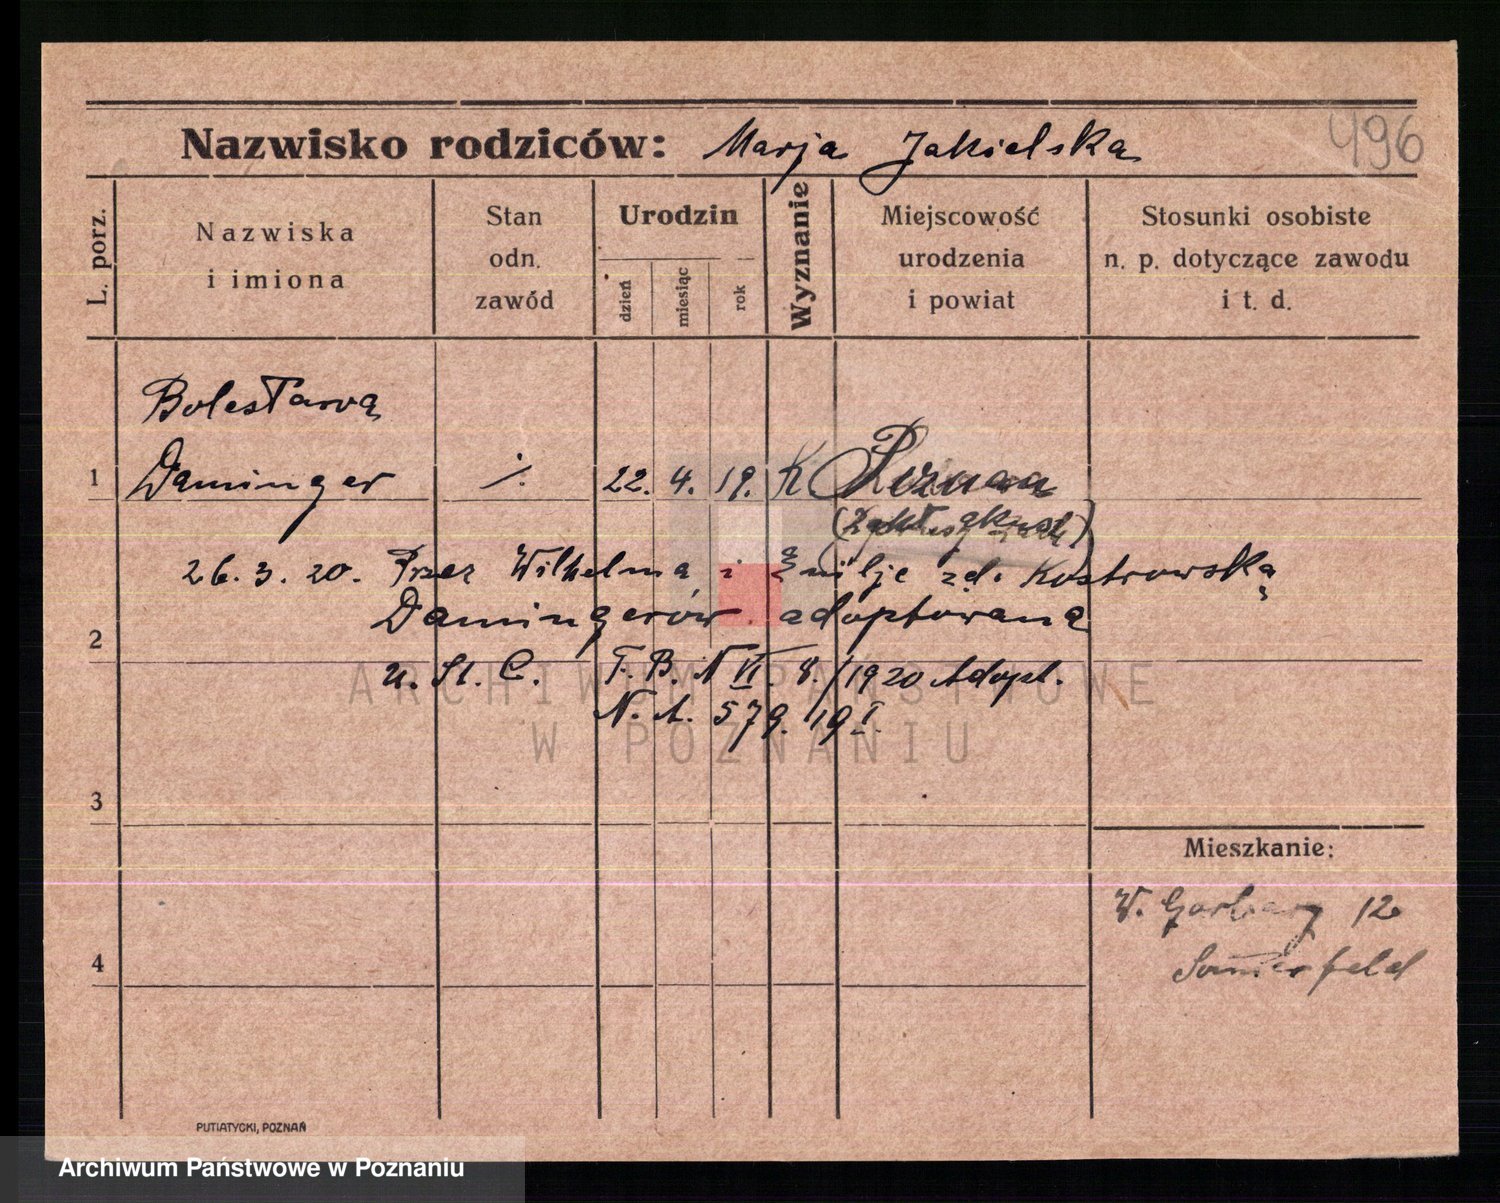 496
Nazwisko rodziców: Marja Jakielska
L. porz.
Nazwiska
i imiona
Stan
odn.
zawód
Urodzin
dzień
miesiąc
rok
Wyznanie
Miejscowość
urodzenia
i powiat
Stosunki osobiste
n. p. dotyczące zawodu
i t. d.
Bolesława
1 Daminger ·/. 22. 4. 19. K Poznań
26. 3. 20. Przez Wilhelma i Emilję zd. Kostrowską
2 Damingerów adoptowaną
u. St. C. T. B. N VI. 8./1920 Adopt.
N. A. 579. 19 I.
3
Mieszkanie:
W. Garbary 12
4 Sommerfeld
PUTIATYCKI, POZNAŃ
ARCHIWUM PAŃSTWOWE
W POZNANIU
Archiwum Państwowe w Poznaniu